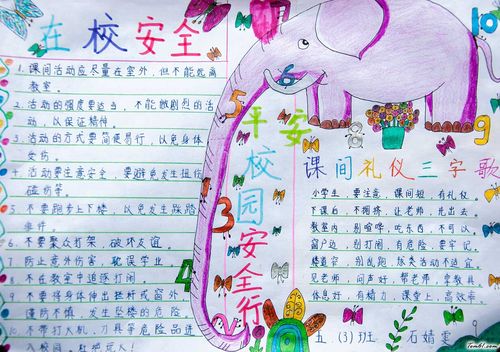 在校安全
1. 课间活动应尽量在室外，但不能远离
教室。
2. 活动的强度要适当，不能做剧烈的活
动，以保证精神。
3. 活动的方式要简便易行，以免身体
受伤。
4. 活动要注意安全，要避免发生扭伤
碰伤等。
5. 不要跑步上下楼，以免发生踩踏
事件。
6. 不要聚众打架，破坏友谊。
防止意外伤害，耽误学业
不在教室中追逐打闹。
不要将身体伸出栏杆或窗外
谨防不慎，发生坠楼的危险。
不带打火机，刀具等危险品进
入校园
平安校园安全行
10
6
5
9
3
4
2
课间礼仪三字歌
小学生，要注意，课间短，有礼仪。
下课后，不拥挤，让老师，先出去。
教室内，别喧哗，吃东西，不可以。
窗户边，别打闹，有危险，要牢记。
楼道窄，别乱跑，球类活动不适宜。
见老师，问声好，帮老师，拿教具。
休息好，有精力，课堂上，高效率。
五.(3)班 石婧雯
Tom61.com